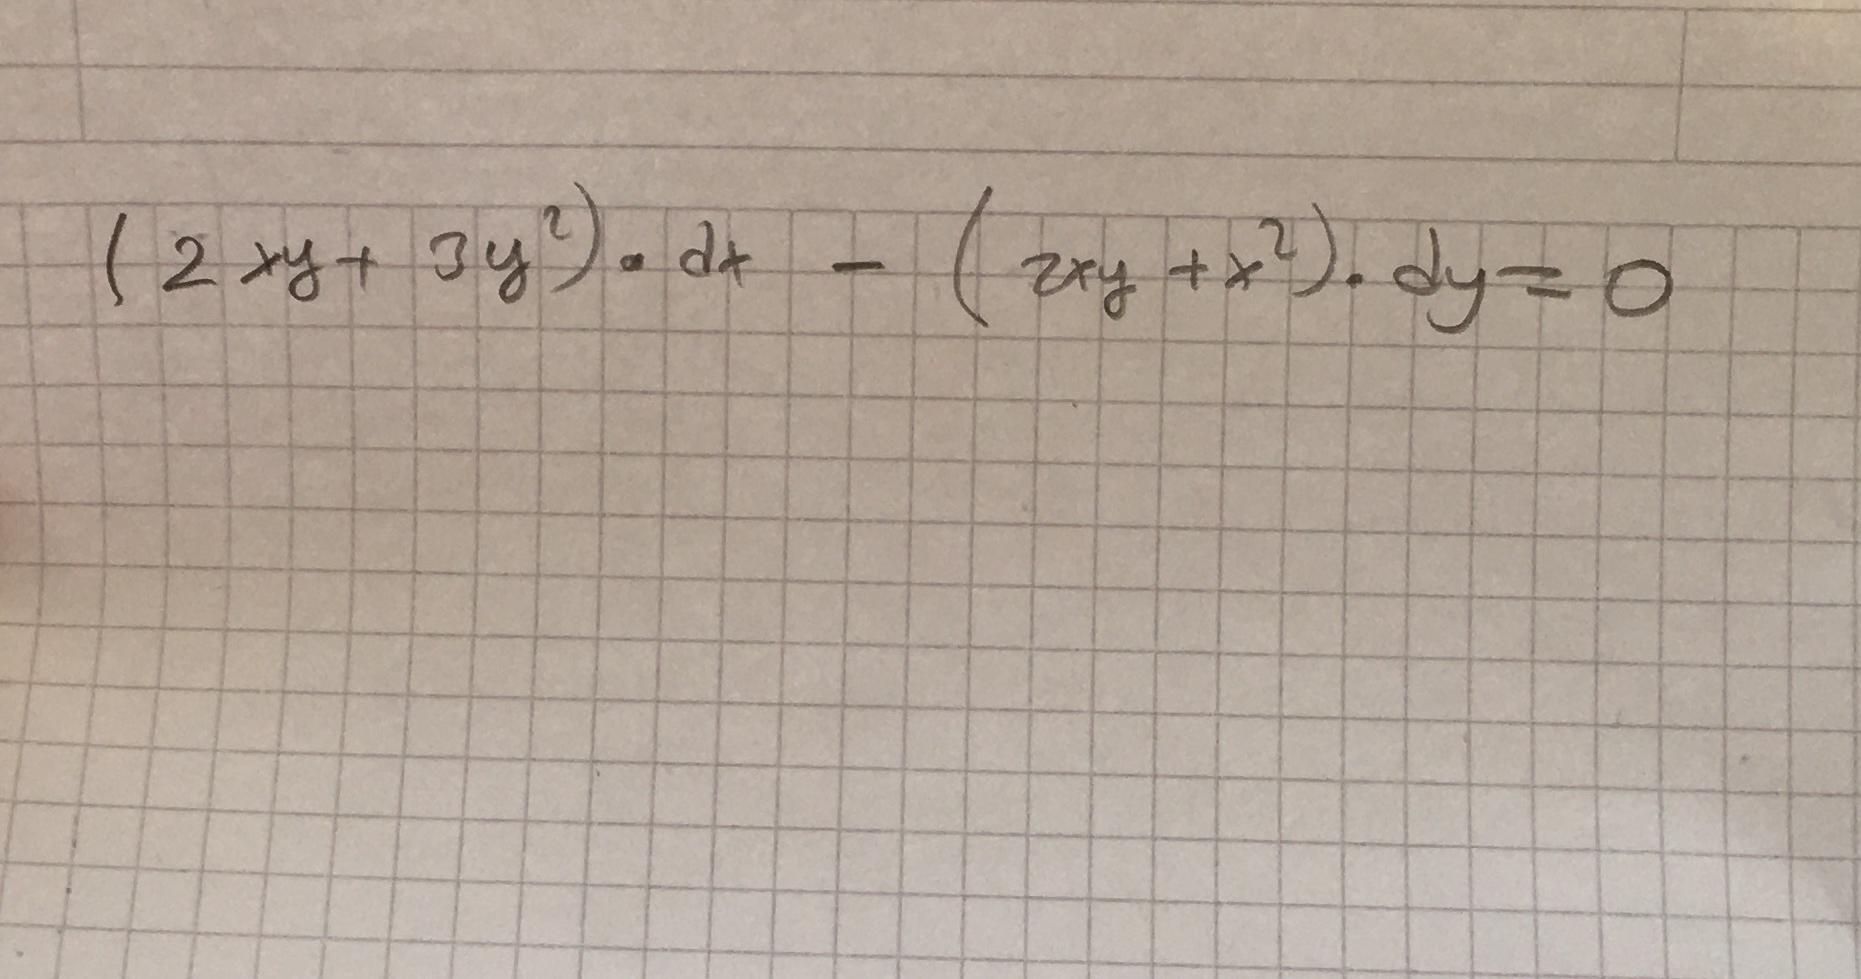 (2xy + 3y²) · dx - (2xy + x²) · dy = 0